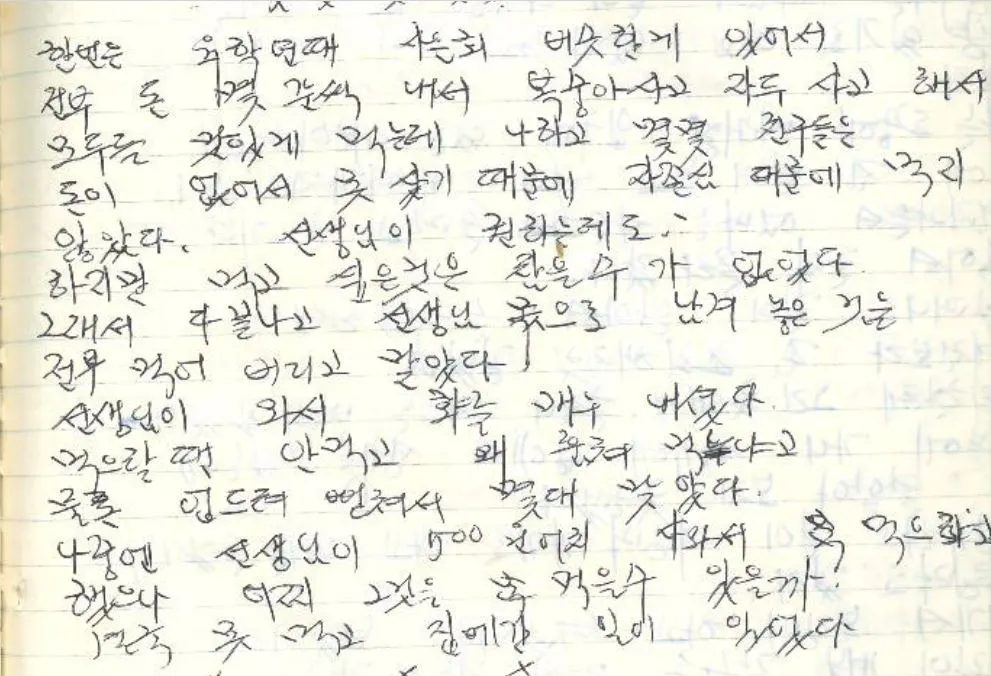 한번은 육학년때 사은회 비슷한게 있어서
전부 돈 몇 눈씩 내서 복숭아사고 자두 사고 해서
모두들 맛있게 먹는데 나하고 몇몇 친구들은
돈이 없어서 못 냈기 때문에 자존심 때문에 먹지
않았다. 선생님이 권하는데도.
하지만 먹고 싶은것은 참을수가 없었다.
그래서 다 끝나고 선생님 몫으로 남겨 놓은 것을
전부 먹어 버리고 말았다
선생님이 와서 화를 내셨다.
먹으랄 땐 안먹고 왜 훔쳐 먹느냐고
물론 엎드려 뻗쳐서 몇대 맞았다.
나중엔 선생님이 500원어치 사와서 다 먹으라고
했으나 어찌 그것을 다 먹을수 있을까.
결국 못 먹고 집에간 일이 있었다